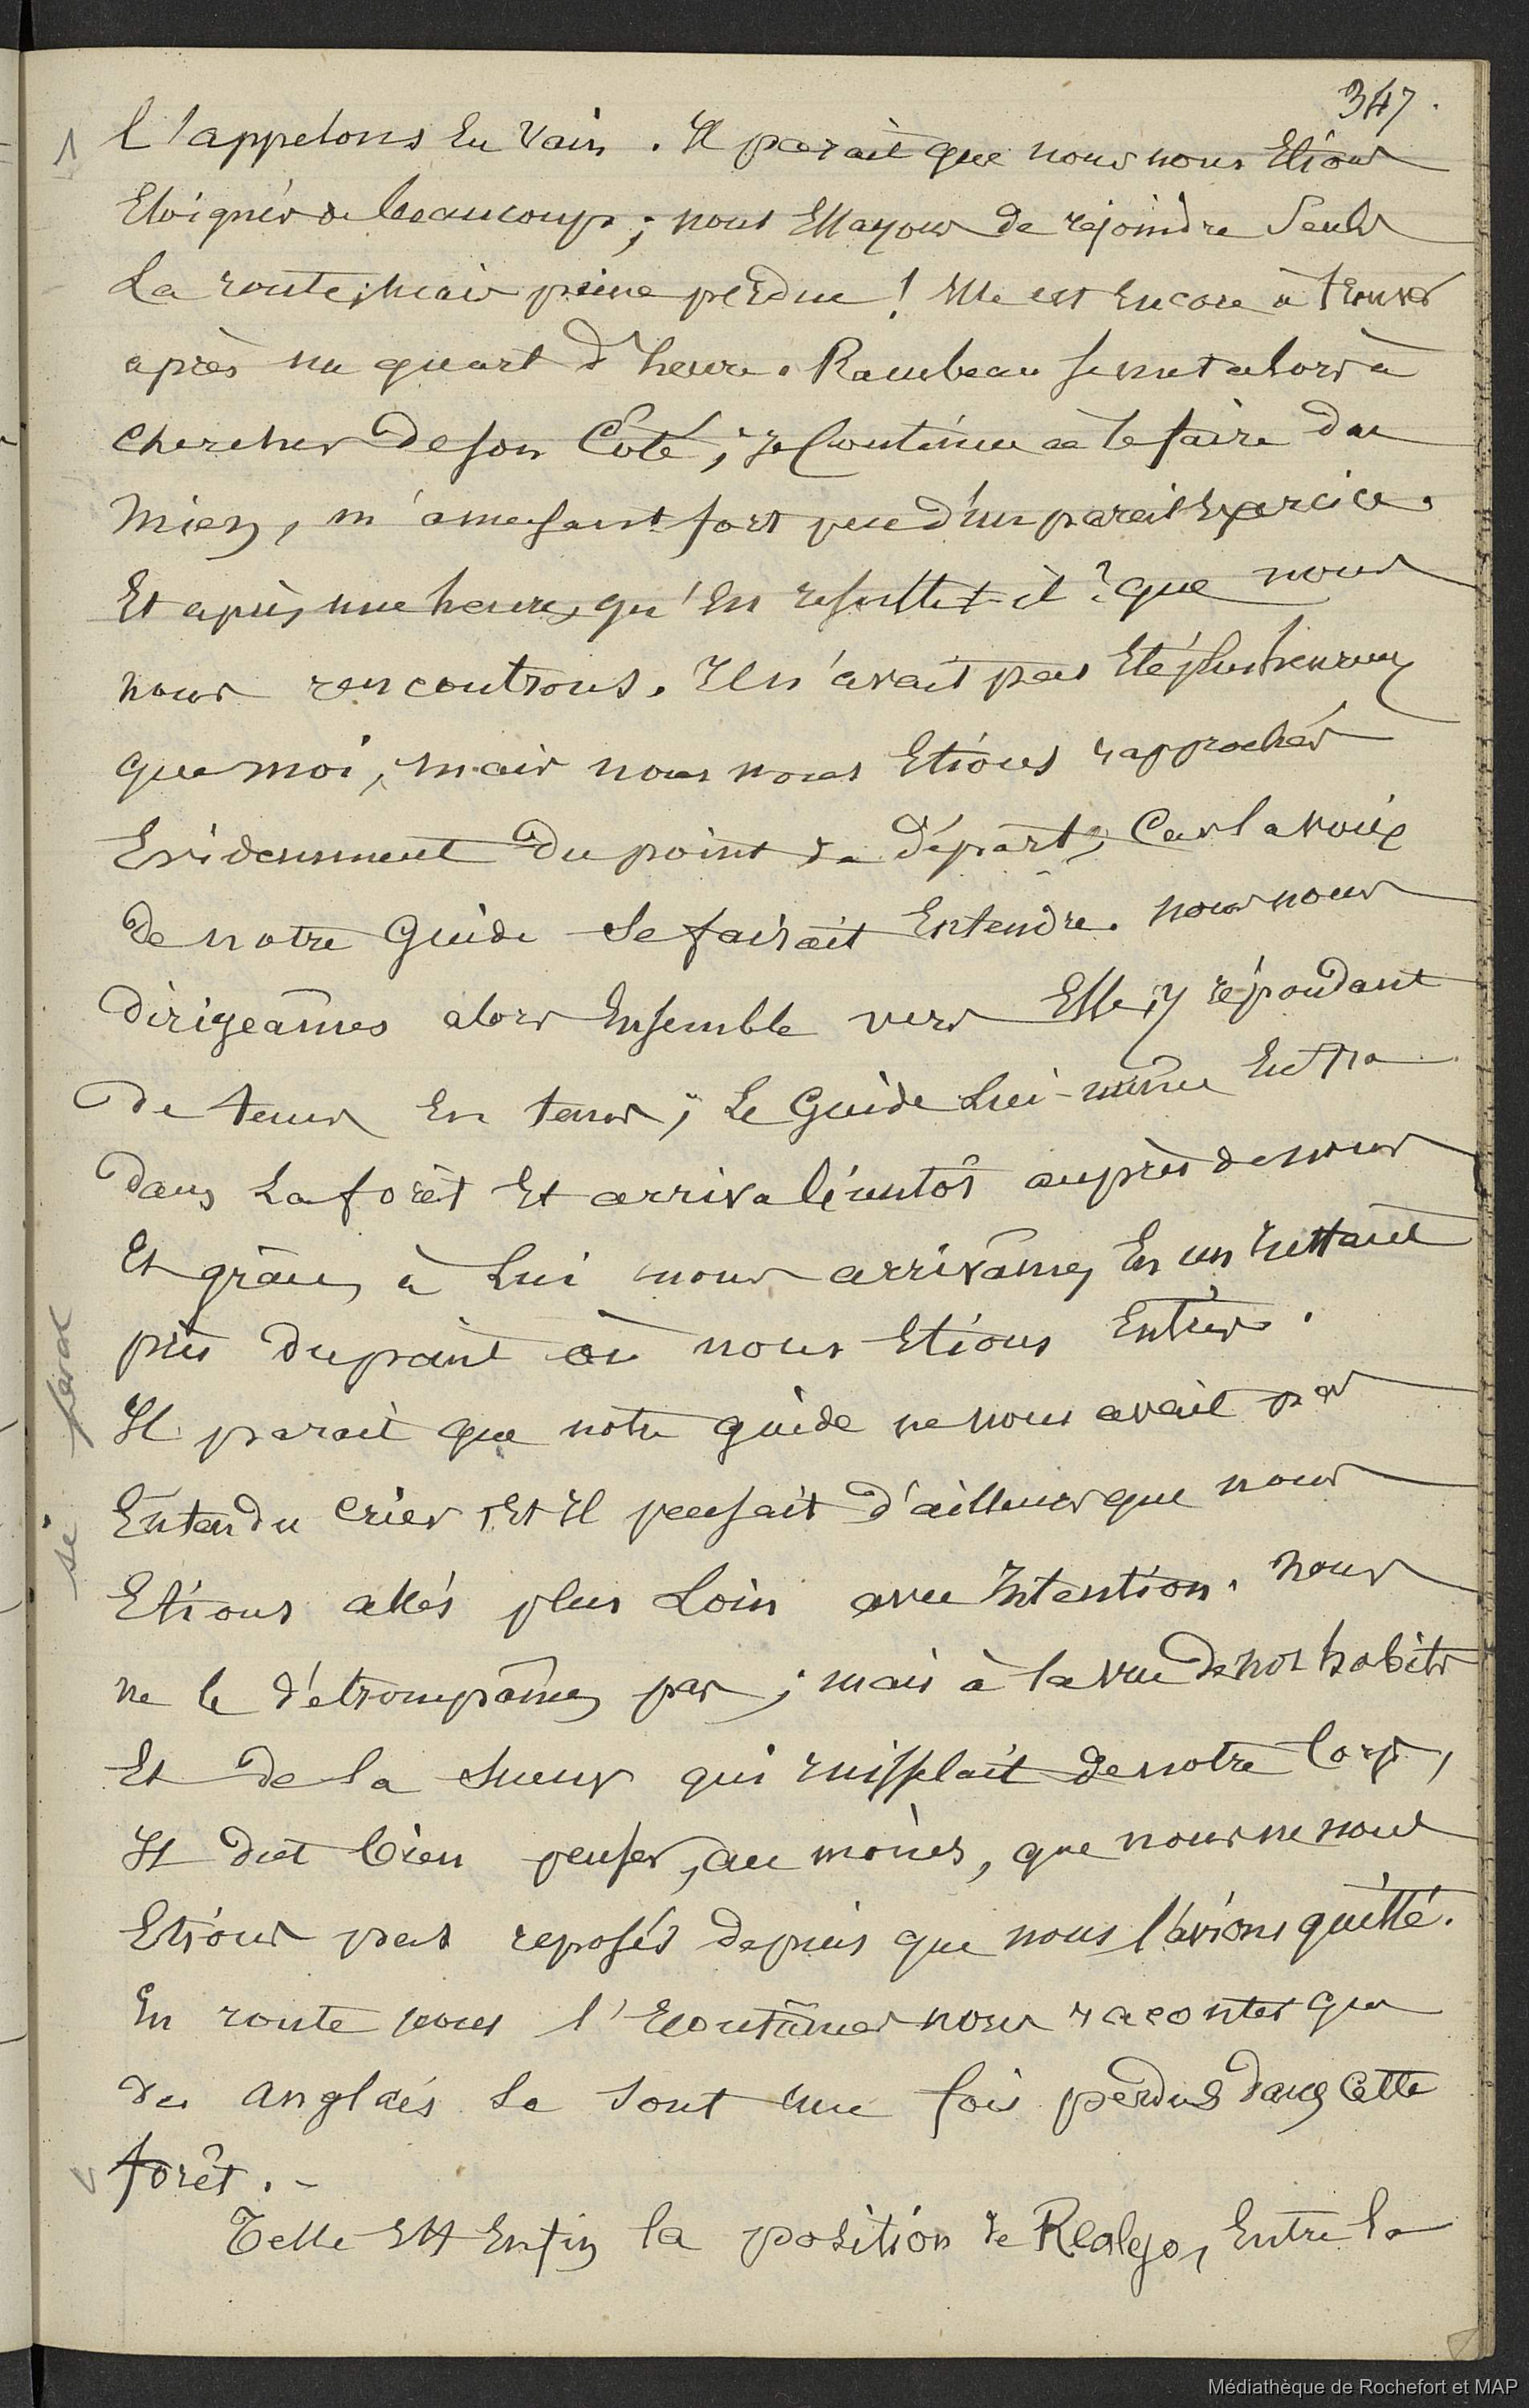 347.
l'appelons En Vain. Il parait que nous nous Etions
Eloignés de beaucoup; nous Essayons de rejoindre Seuls
La route, mais peine perdue! Elle est Encore à trouver
après un quart d'heure. Raimbeau se met alors à
chercher de son Côté; je Continue à le faire du
mien, m'amusant fort peu d'un pareil Exercice.
Et après une heure, qu'En resulte-t-il? que nous
nous rencontrons. Il n'avait pas Eté plus heureux
que moi, mais nous nous Etions rapprochés
Evidemment Du point de Départ, Car la voix
De notre Guide Se faisait Entendre. nous nous
Dirigeâmes alors Ensemble vers Elle, y répondant
De tems En tems; Le Guide Lui-même Entra
Dans La forêt Et arriva bientôt auprès de nous
Et grâce, à Lui nous arrivâmes En un Instant
près Du point où nous Etions Entrés.
Il parait que notre guide ne nous avait pas
Entendu crier, Et Il pensait D'ailleurs que nous
Etions allés plus Loin avec Intention. nous
ne le Détrompâmes pas; mais à la vue De nos habits
Et De la Sueur qui ruisselait De notre Corps,
Il Dut bien penser, au moins, que nous ne nous
Etions pas reposés Depuis que nous l'avions quitté.
En route nous l'Ecoutâmes nous raconter que
des anglais Se Sont une fois perdus Dans Cette
forêt. -
Telle Est Enfin la position de Realejo, Entre la
se perdre
Médiathèque de Rochefort et MAP